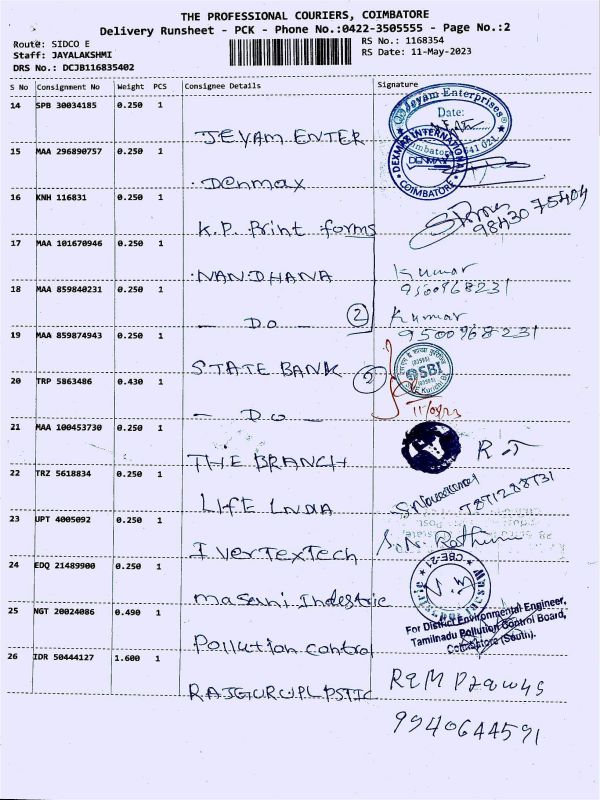 THE PROFESSIONAL COURIERS, COIMBATORE
Delivery Runsheet - PCK - Phone No.:0422-3505555 - Page No.:2
Route: SIDCO E
RS No.: 1168354
Staff: JAYALAKSHMI
RS Date: 11-May-2023
DRS No.: DCJB116835402
S No Consignment No Weight PCS Consignee Details Signature
14 SPB 30034185 0.250 1
JEYAM ENTER
Jeyam Enterprises
Date:
15 MAA 296890757 0.250 1
Denmax
DEXMAR INTERNATIONAL
DENMAX
COIMBATORE
16 KNH 116831 0.250 1
K.P. Print forms
98430 75404
17 MAA 101670946 0.250 1
NANDHANA
Kumar
9500968231
18 MAA 859840231 0.250 1
- DO - 2
Kumar
9500968231
19 MAA 859874943 0.250 1
STATE BANK
SBI
20 TRP 5863486 0.430 1
- DO -
11/05/23
21 MAA 100453730 0.250 1
THE BRANCH
22 TRZ 5618834 0.250 1
LIFE INDIA
7871288731
23 UPT 4005092 0.250 1
I VerTexTech
S.N. Rathin
24 EDQ 21489900 0.250 1
masani Indestric
CBE-21
25 NGT 20024086 0.490 1
Pollution control
For District Environmental Engineer,
Tamilnadu Pollution Control Board,
Coimbatore (South).
26 IDR 50444127 1.600 1
RAJGURUPLPSTIC
9940644591